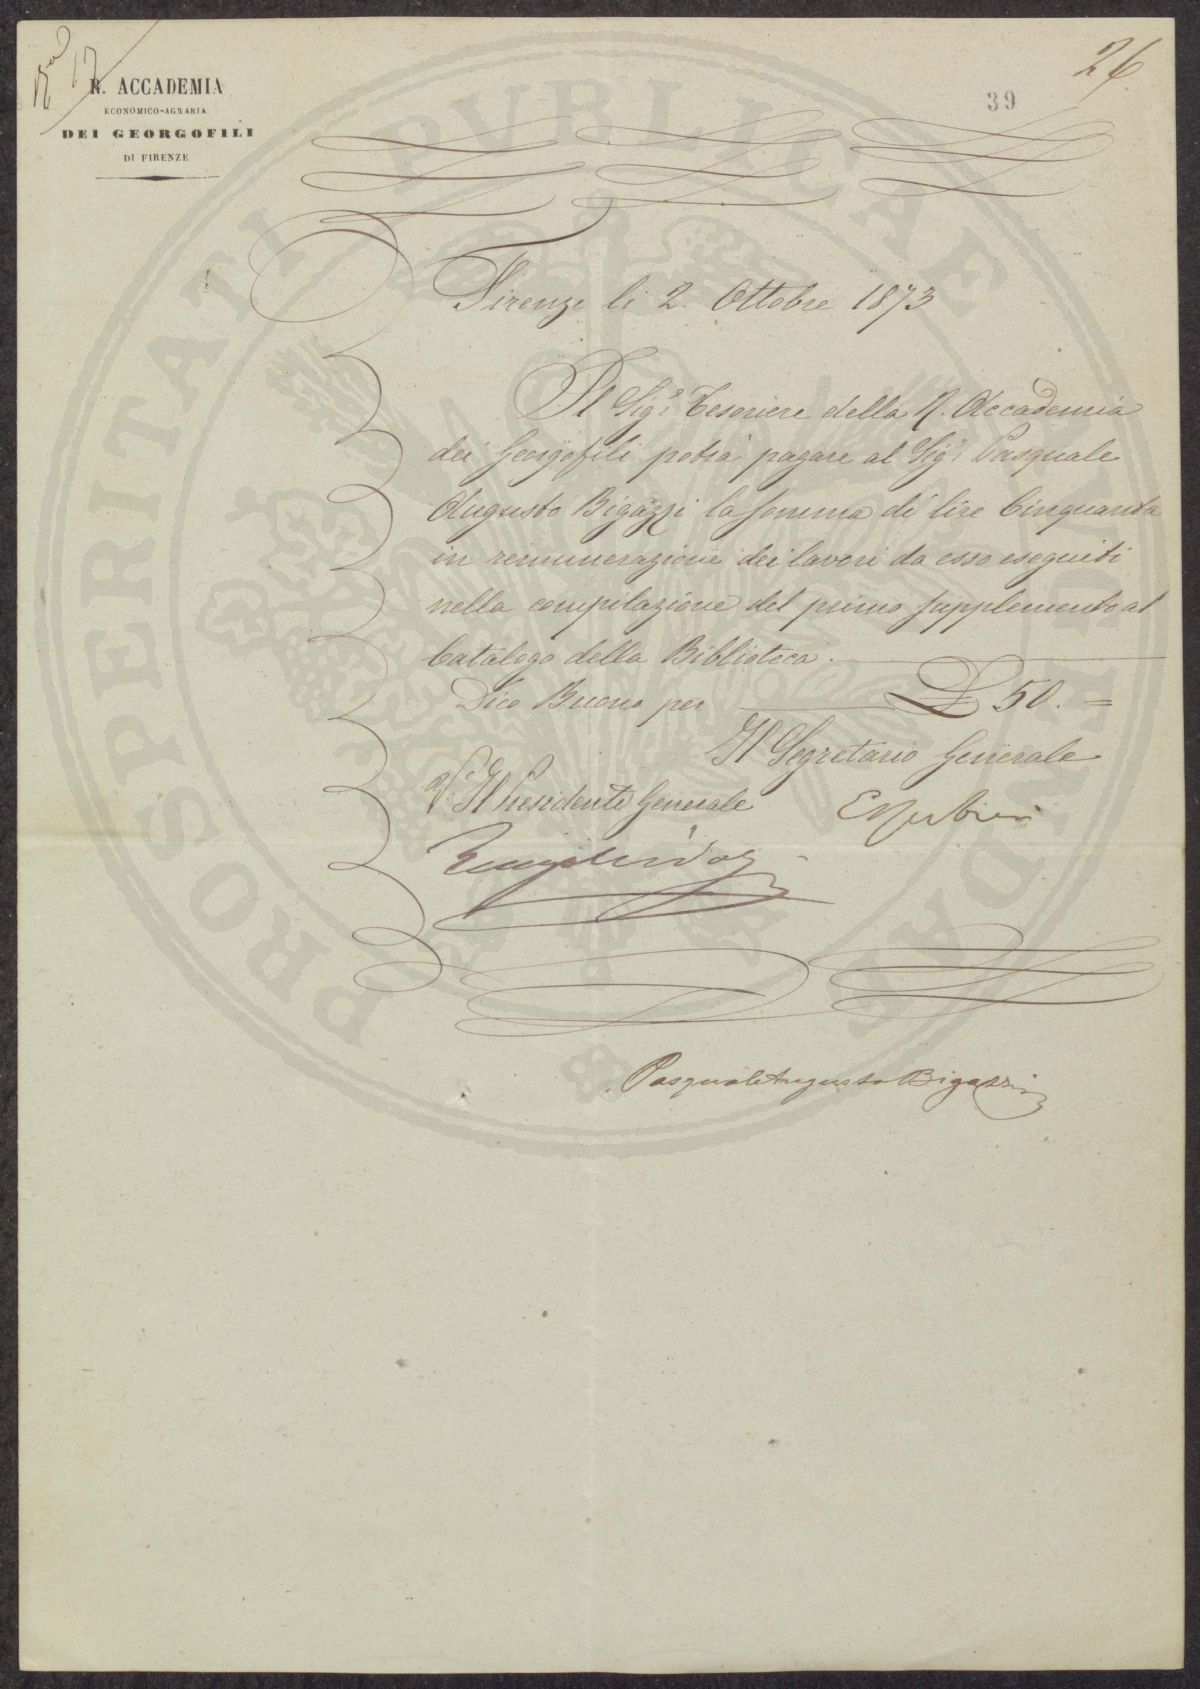 26
39
R. ACCADEMIA
ECONOMICO-AGRARIA
DEI GEORGOFILI
DI FIRENZE
PROSPERITATI PVBLICAE AVGENDAE
Firenze li 2. Ottobre 1873
Il Sigr. Tesoriere della R. Accademia
dei Georgofili potrà pagare al Sigr. Pasquale
Augusto Bigazzi la somma di lire Cinquanta
in remunerazione dei lavori da esso eseguiti
nella compilazione del primo supplemento al
Catalogo della Biblioteca.
Dico Buono per L 50. =
Il Segretario Generale
V° Il Presidente Generale
Pasquale Augusto Bigazzi